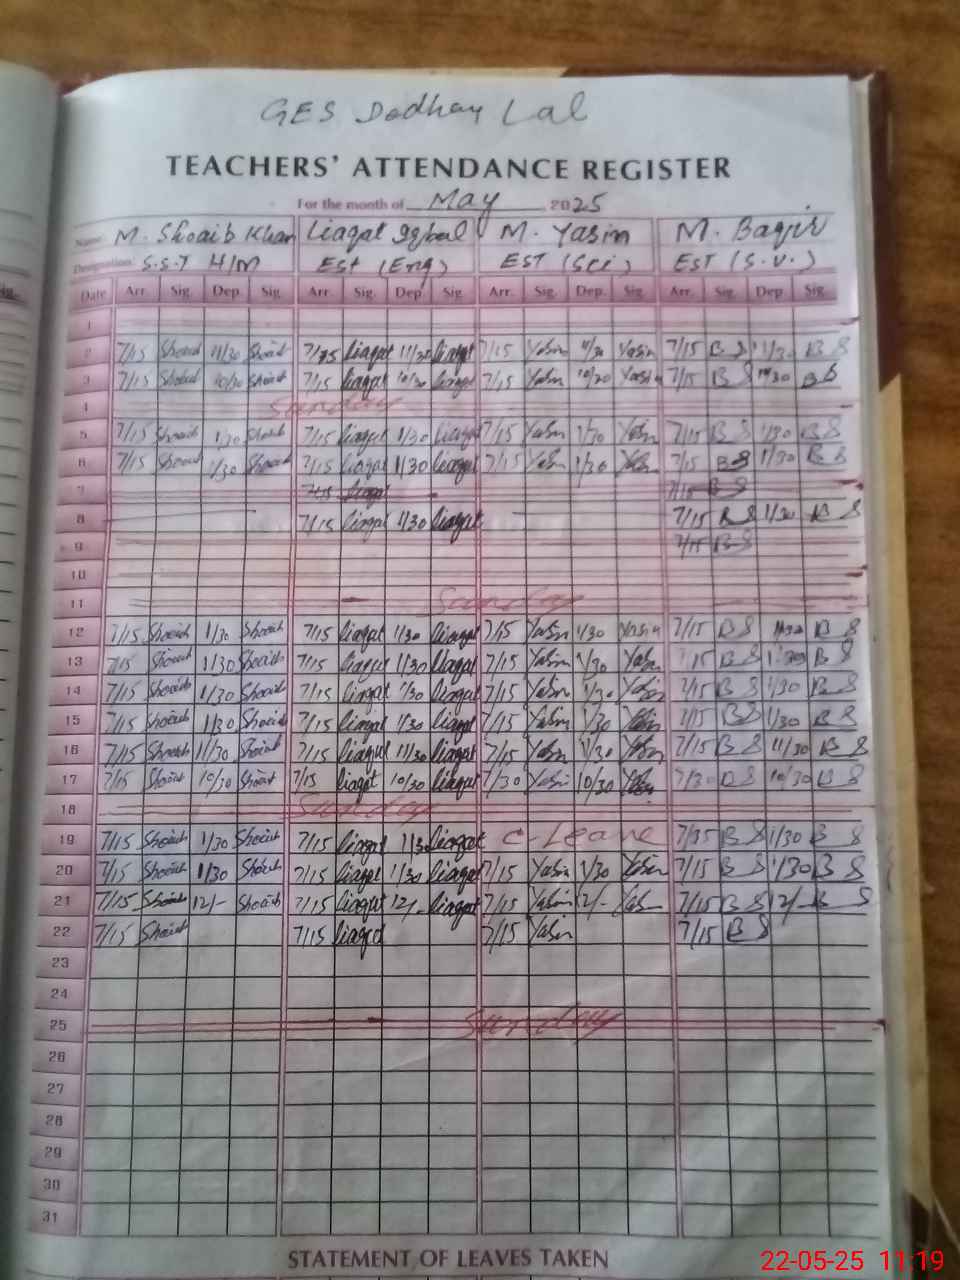 GES Dodhay Lal
TEACHERS' ATTENDANCE REGISTER
For the month of May 2025
Name: M. Shoaib Khan Liaqat Iqbal M. Yasin M. Baqir
Designation: S.S.T H/M EST (Eng) EST (Sci) EST (S.V.)
Date Arr. Sig. Dep. Sig. Arr. Sig. Dep. Sig. Arr. Sig. Dep. Sig. Arr. Sig. Dep. Sig.
1
2 7/15 Shoaib 11/30 Shoaib 7/15 liaqat 11/30 liaqat 7/15 Yasin 11/30 Yasin 7/15 B S 11/30 B S
3 7/15 Shoaib 10/30 Shoaib 7/15 liaqat 10/30 liaqat 7/15 Yasin 10/30 Yasin 7/15 B S 10/30 B S
4 Sunday
5 7/15 Shoaib 1/30 Shoaib 7/15 liaqat 1/30 liaqat 7/15 Yasin 1/30 Yasin 7/15 B S 1/30 B S
6 7/15 Shoaib 1/30 Shoaib 7/15 liaqat 1/30 liaqat 7/15 Yasin 1/30 Yasin 7/15 B S 1/30 B S
7 7/15 liaqat 7/15 B S
8 7/15 liaqat 1/30 liaqat 7/15 B S 1/30 B S
9 7/15 B S
10
11 Sunday
12 7/15 Shoaib 1/30 Shoaib 7/15 liaqat 1/30 liaqat 7/15 Yasin 1/30 Yasin 7/15 B S 1/30 B S
13 7/15 Shoaib 1/30 Shoaib 7/15 liaqat 1/30 liaqat 7/15 Yasin 1/30 Yasin 7/15 B S 1/30 B S
14 7/15 Shoaib 1/30 Shoaib 7/15 liaqat 1/30 liaqat 7/15 Yasin 1/30 Yasin 7/15 B S 1/30 B S
15 7/15 Shoaib 1/30 Shoaib 7/15 liaqat 1/30 liaqat 7/15 Yasin 1/30 Yasin 7/15 B S 1/30 B S
16 7/15 Shoaib 11/30 Shoaib 7/15 liaqat 11/30 liaqat 7/15 Yasin 11/30 Yasin 7/15 B S 11/30 B S
17 7/15 Shoaib 10/30 Shoaib 7/15 liaqat 10/30 liaqat 7/30 Yasin 10/30 Yasin 7/30 B S 10/30 B S
18 Sunday
19 7/15 Shoaib 1/30 Shoaib 7/15 liaqat 1/30 liaqat C-Leave 7/35 B S 1/30 B S
20 7/15 Shoaib 1/30 Shoaib 7/15 liaqat 1/30 liaqat 7/15 Yasin 1/30 Yasin 7/15 B S 1/30 B S
21 7/15 Shoaib 12/- Shoaib 7/15 liaqat 12/- liaqat 7/15 Yasin 12/- Yasin 7/15 B S 12/- B S
22 7/15 Shoaib 7/15 liaqat 7/15 Yasin 7/15 B S
23
24
25 Sunday
26
27
28
29
30
31
STATEMENT OF LEAVES TAKEN
22-05-25 11:19